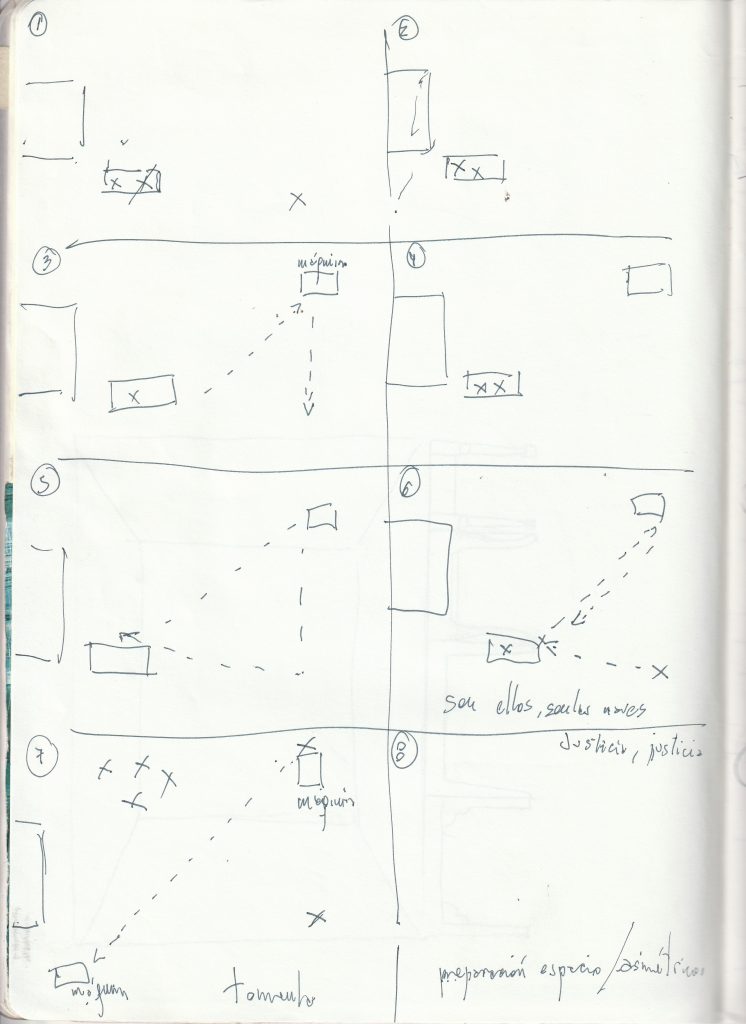 1
2
3
máquina
4
5
6
son ellos, son las naves
Justicia, justicia
7
8
máquina
máquina
tormenta
preparación espacio / asimétrico